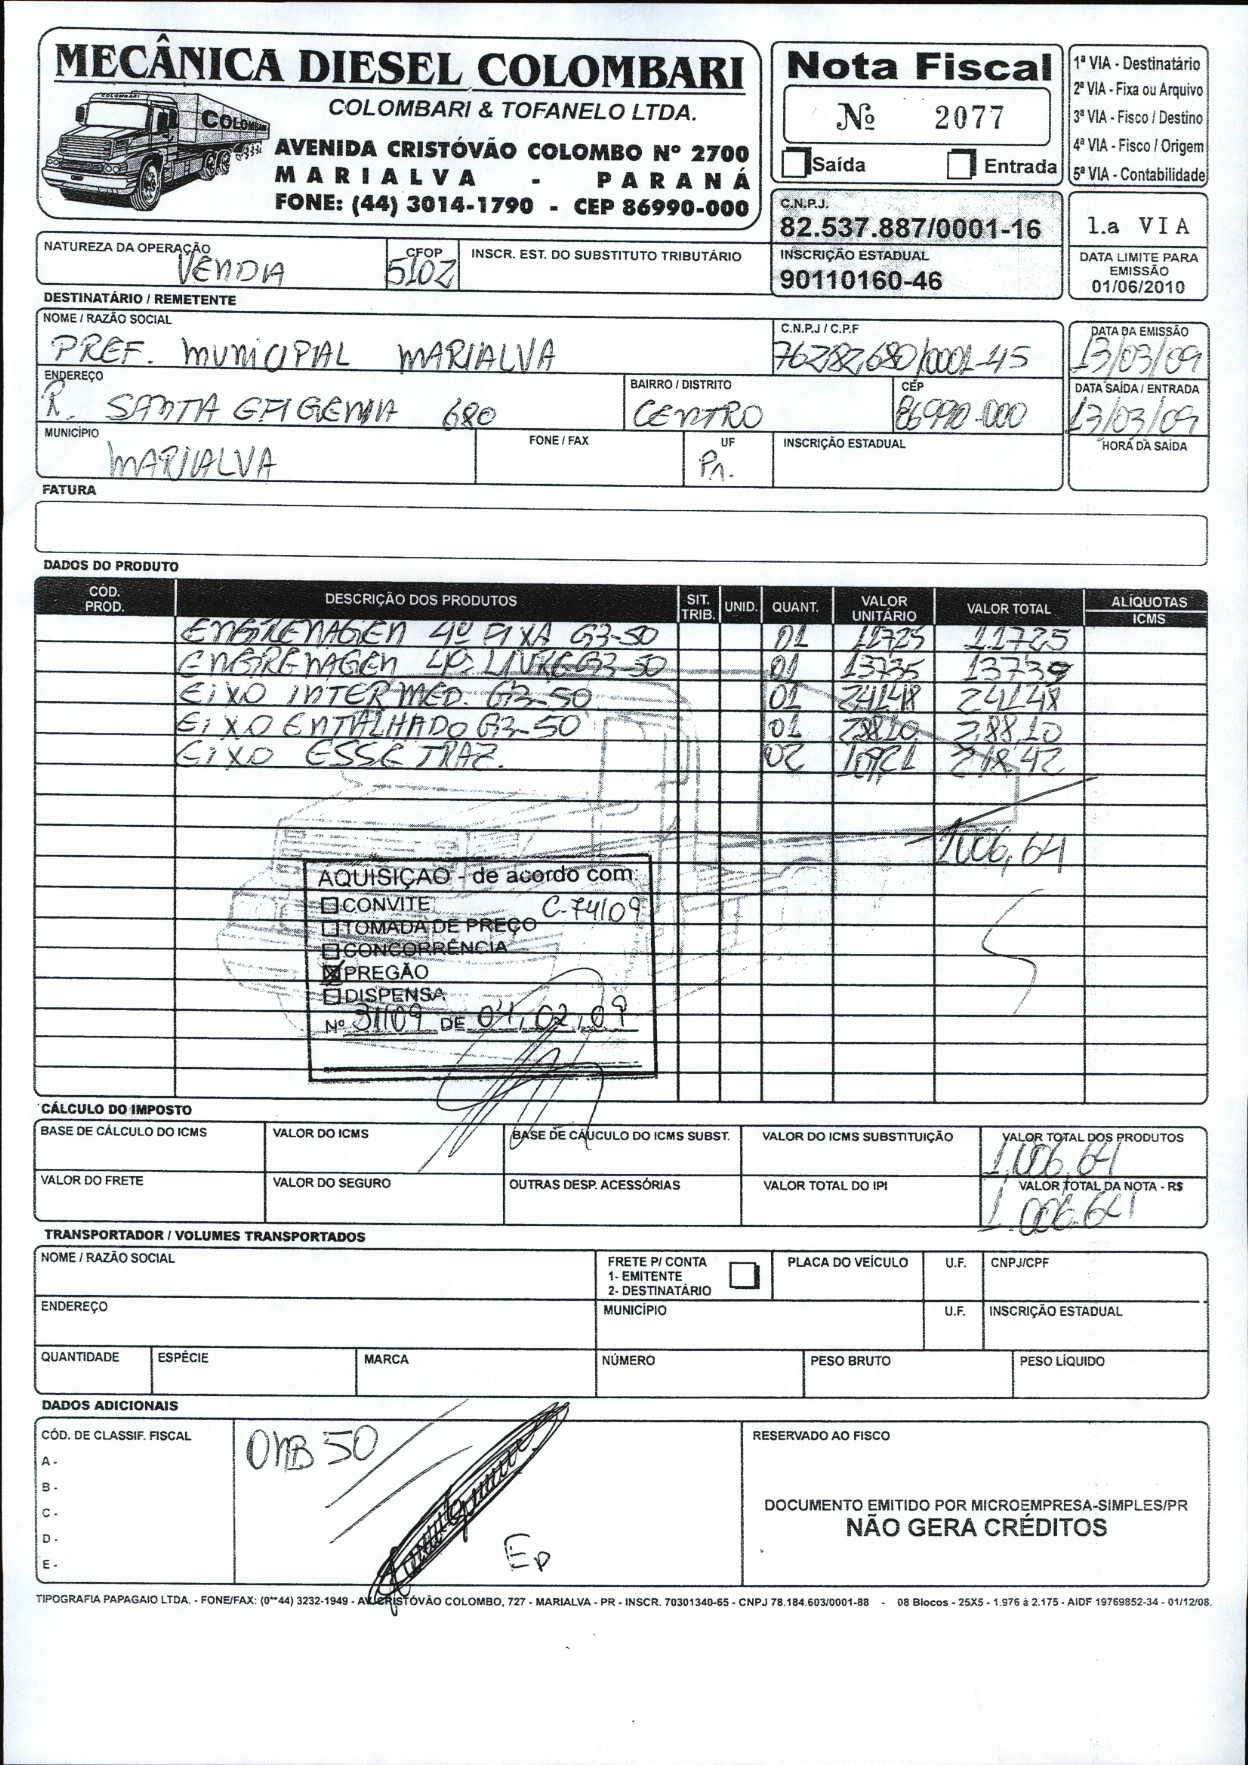 MECÂNICA DIESEL COLOMBARI
COLOMBARI & TOFANELO LTDA.
COLOMBARI
COLOMBARI
AVENIDA CRISTÓVÃO COLOMBO Nº 2700
MARIALVA - PARANÁ
FONE: (44) 3014-1790 - CEP 86990-000
Nota Fiscal
Nº 2077
Saída Entrada
1ª VIA - Destinatário
2ª VIA - Fixa ou Arquivo
3ª VIA - Fisco / Destino
4ª VIA - Fisco / Origem
5ª VIA - Contabilidade
C.N.P.J.
82.537.887/0001-16
INSCRIÇÃO ESTADUAL
90110160-46
1.a VIA
DATA LIMITE PARA
EMISSÃO
01/06/2010
NATUREZA DA OPERAÇÃO
VENDA
CFOP
5102
INSCR. EST. DO SUBSTITUTO TRIBUTÁRIO
DESTINATÁRIO / REMETENTE
NOME / RAZÃO SOCIAL
PREF. MUNICIPAL MARIALVA
C.N.P.J / C.P.F
76282680/0001-45
DATA DA EMISSÃO
13/03/09
ENDEREÇO
R. SANTA EFIGENIA 680
BAIRRO / DISTRITO
CENTRO
CEP
86990-000
DATA SAÍDA / ENTRADA
13/03/09
MUNICÍPIO
MARIALVA
FONE / FAX
UF
Pr.
INSCRIÇÃO ESTADUAL
HORA DA SAÍDA
FATURA
DADOS DO PRODUTO
CÓD. PROD. DESCRIÇÃO DOS PRODUTOS SIT. TRIB. UNID. QUANT. VALOR UNITÁRIO VALOR TOTAL ALÍQUOTAS ICMS
ENGRENAGEN 4º FIXA G3-50 01 11725 11725
ENGRENAGEN 4º LIVRE G3-50 01 13735 13739
EIXO INTERMED. G3-50 01 24148 24148
EIXO ENTALHADO G3-50 01 28810 288.10
EIXO ESSE TRAZ. 02 10921 218.42
1006,64
AQUISIÇÃO - de acordo com:
CONVITE C-74/09
TOMADA DE PREÇO
CONCORRÊNCIA
PREGÃO
DISPENSA
Nº 31/09 DE 04,02,09
CÁLCULO DO IMPOSTO
BASE DE CÁLCULO DO ICMS VALOR DO ICMS BASE DE CÁLCULO DO ICMS SUBST. VALOR DO ICMS SUBSTITUIÇÃO VALOR TOTAL DOS PRODUTOS
1.006,64
VALOR DO FRETE VALOR DO SEGURO OUTRAS DESP. ACESSÓRIAS VALOR TOTAL DO IPI VALOR TOTAL DA NOTA - R$
1.006.64
TRANSPORTADOR / VOLUMES TRANSPORTADOS
NOME / RAZÃO SOCIAL
FRETE P/ CONTA
1- EMITENTE
2- DESTINATÁRIO
PLACA DO VEÍCULO U.F. CNPJ/CPF
ENDEREÇO MUNICÍPIO U.F. INSCRIÇÃO ESTADUAL
QUANTIDADE ESPÉCIE MARCA NÚMERO PESO BRUTO PESO LÍQUIDO
DADOS ADICIONAIS
CÓD. DE CLASSIF. FISCAL
A -
B -
C -
D -
E -
ONB 50
Ep
RESERVADO AO FISCO
DOCUMENTO EMITIDO POR MICROEMPRESA-SIMPLES/PR
NÃO GERA CRÉDITOS
TIPOGRAFIA PAPAGAIO LTDA. - FONE/FAX: (0**44) 3232-1949 - AV. CRISTÓVÃO COLOMBO, 727 - MARIALVA - PR - INSCR. 70301340-65 - CNPJ 78.184.603/0001-88 - 08 Blocos - 25X5 - 1.976 à 2.175 - AIDF 19769852-34 - 01/12/08.